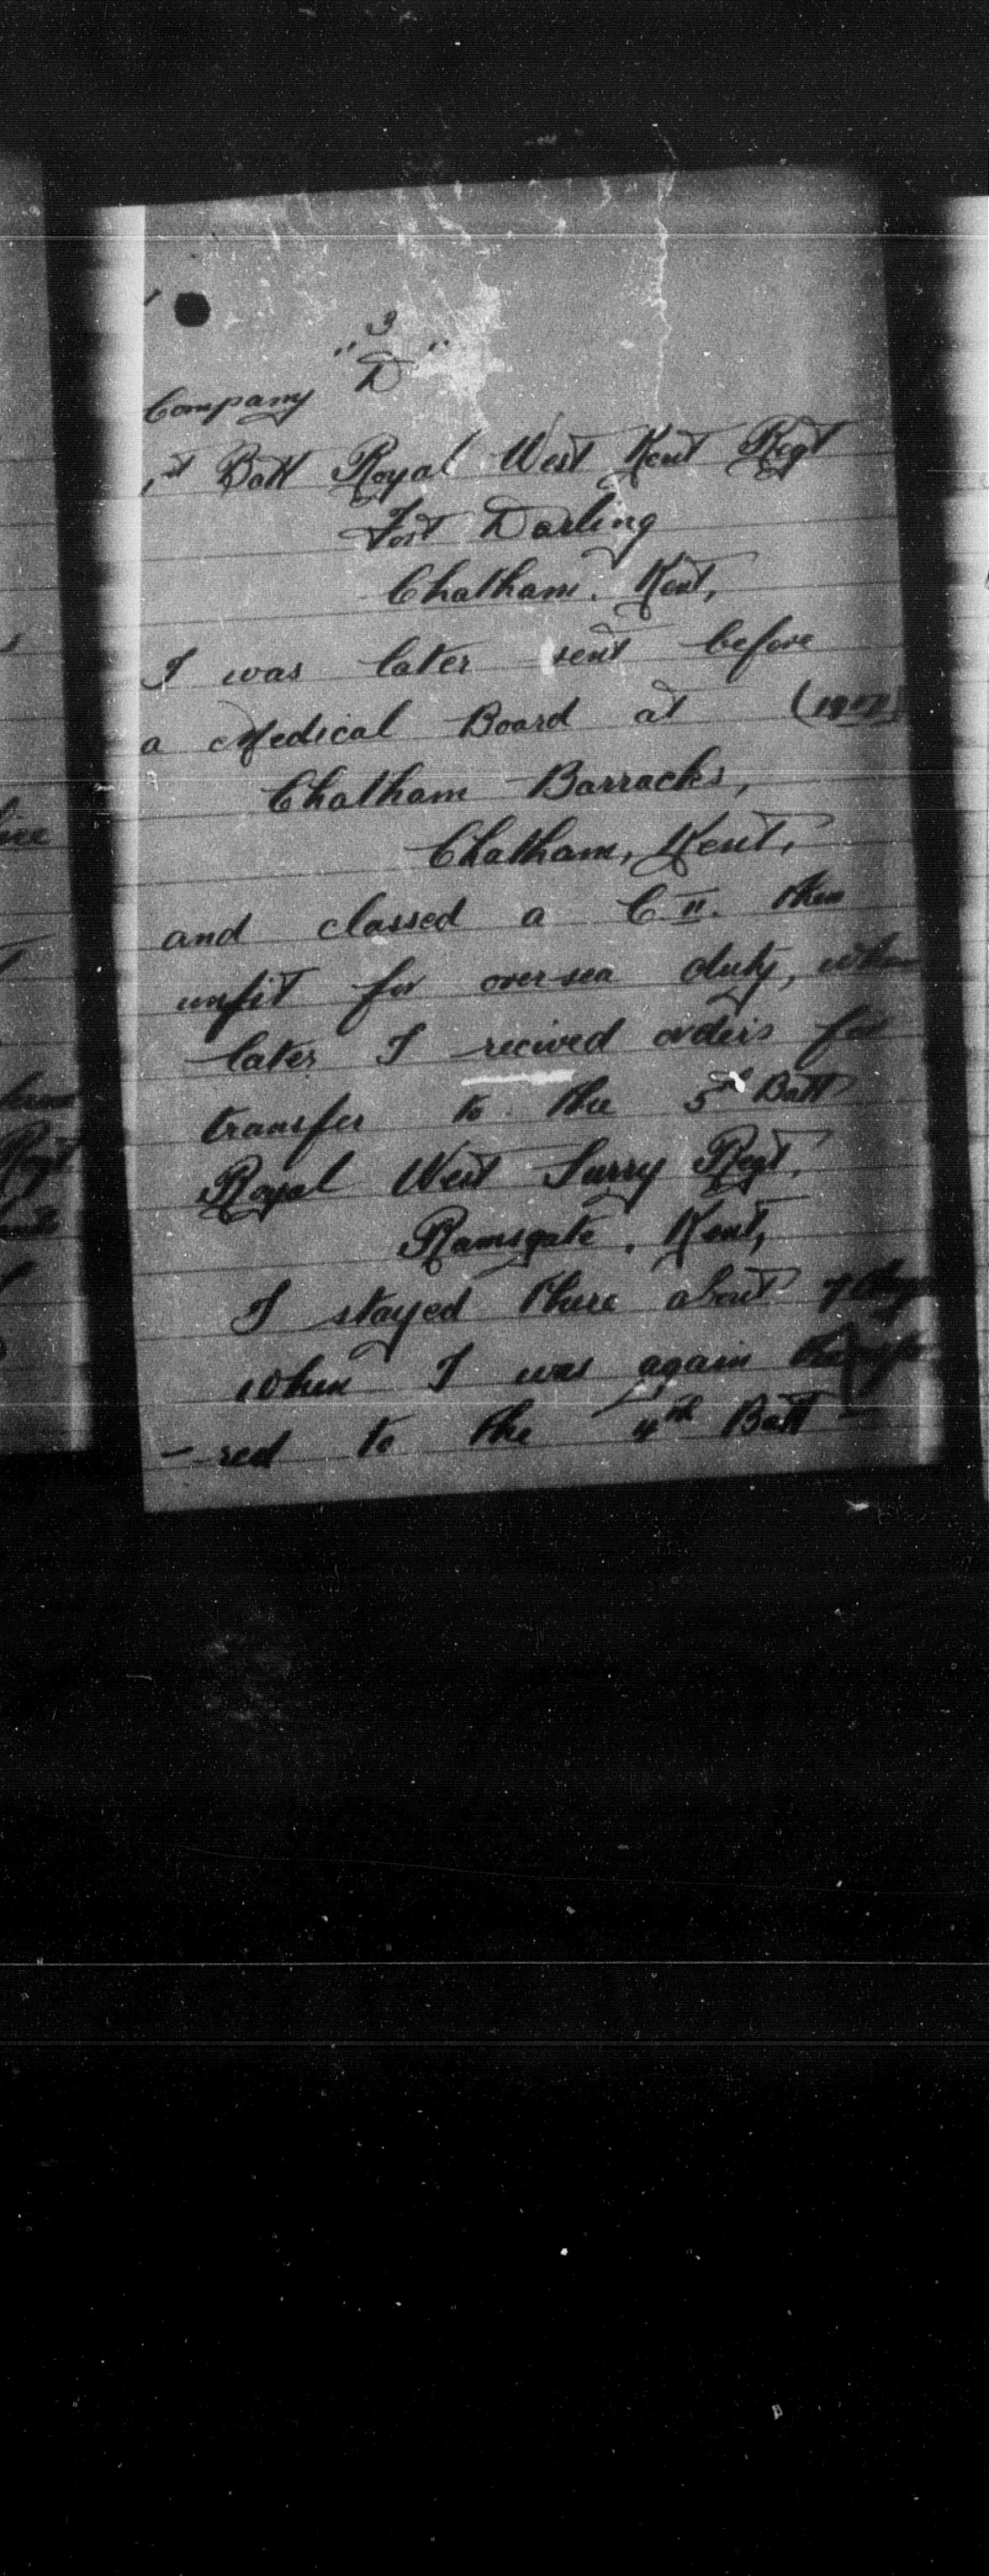 3
Company "D"
1st Batt Royal West Kent Regt
Fort Darling
Chatham. Kent,
I was later sent before
a Medical Board at
Chatham Barracks,
Chatham, Kent,
and classed a C.II. then
unfit for over-sea duty, when
later I recived orders for
transfer to the 5th Batt
Royal West Surry Regt.
Ramsgate, Kent,
I stayed there about 7 days
when I was again
-red to the 4th Batt -